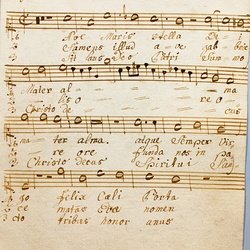 Ave Maris Stella Dei
Sumens illud ave gab=
Sit laus Deo Patri Sum=
Mater al
li o re o
Christo de cus
ma= ter alma. atque Semper Vir
re ore funda nos in pa
Christo decus Spiritui San
go felix Cæli Porta
ce mutans Evæ nomen
cto tribus honor unus